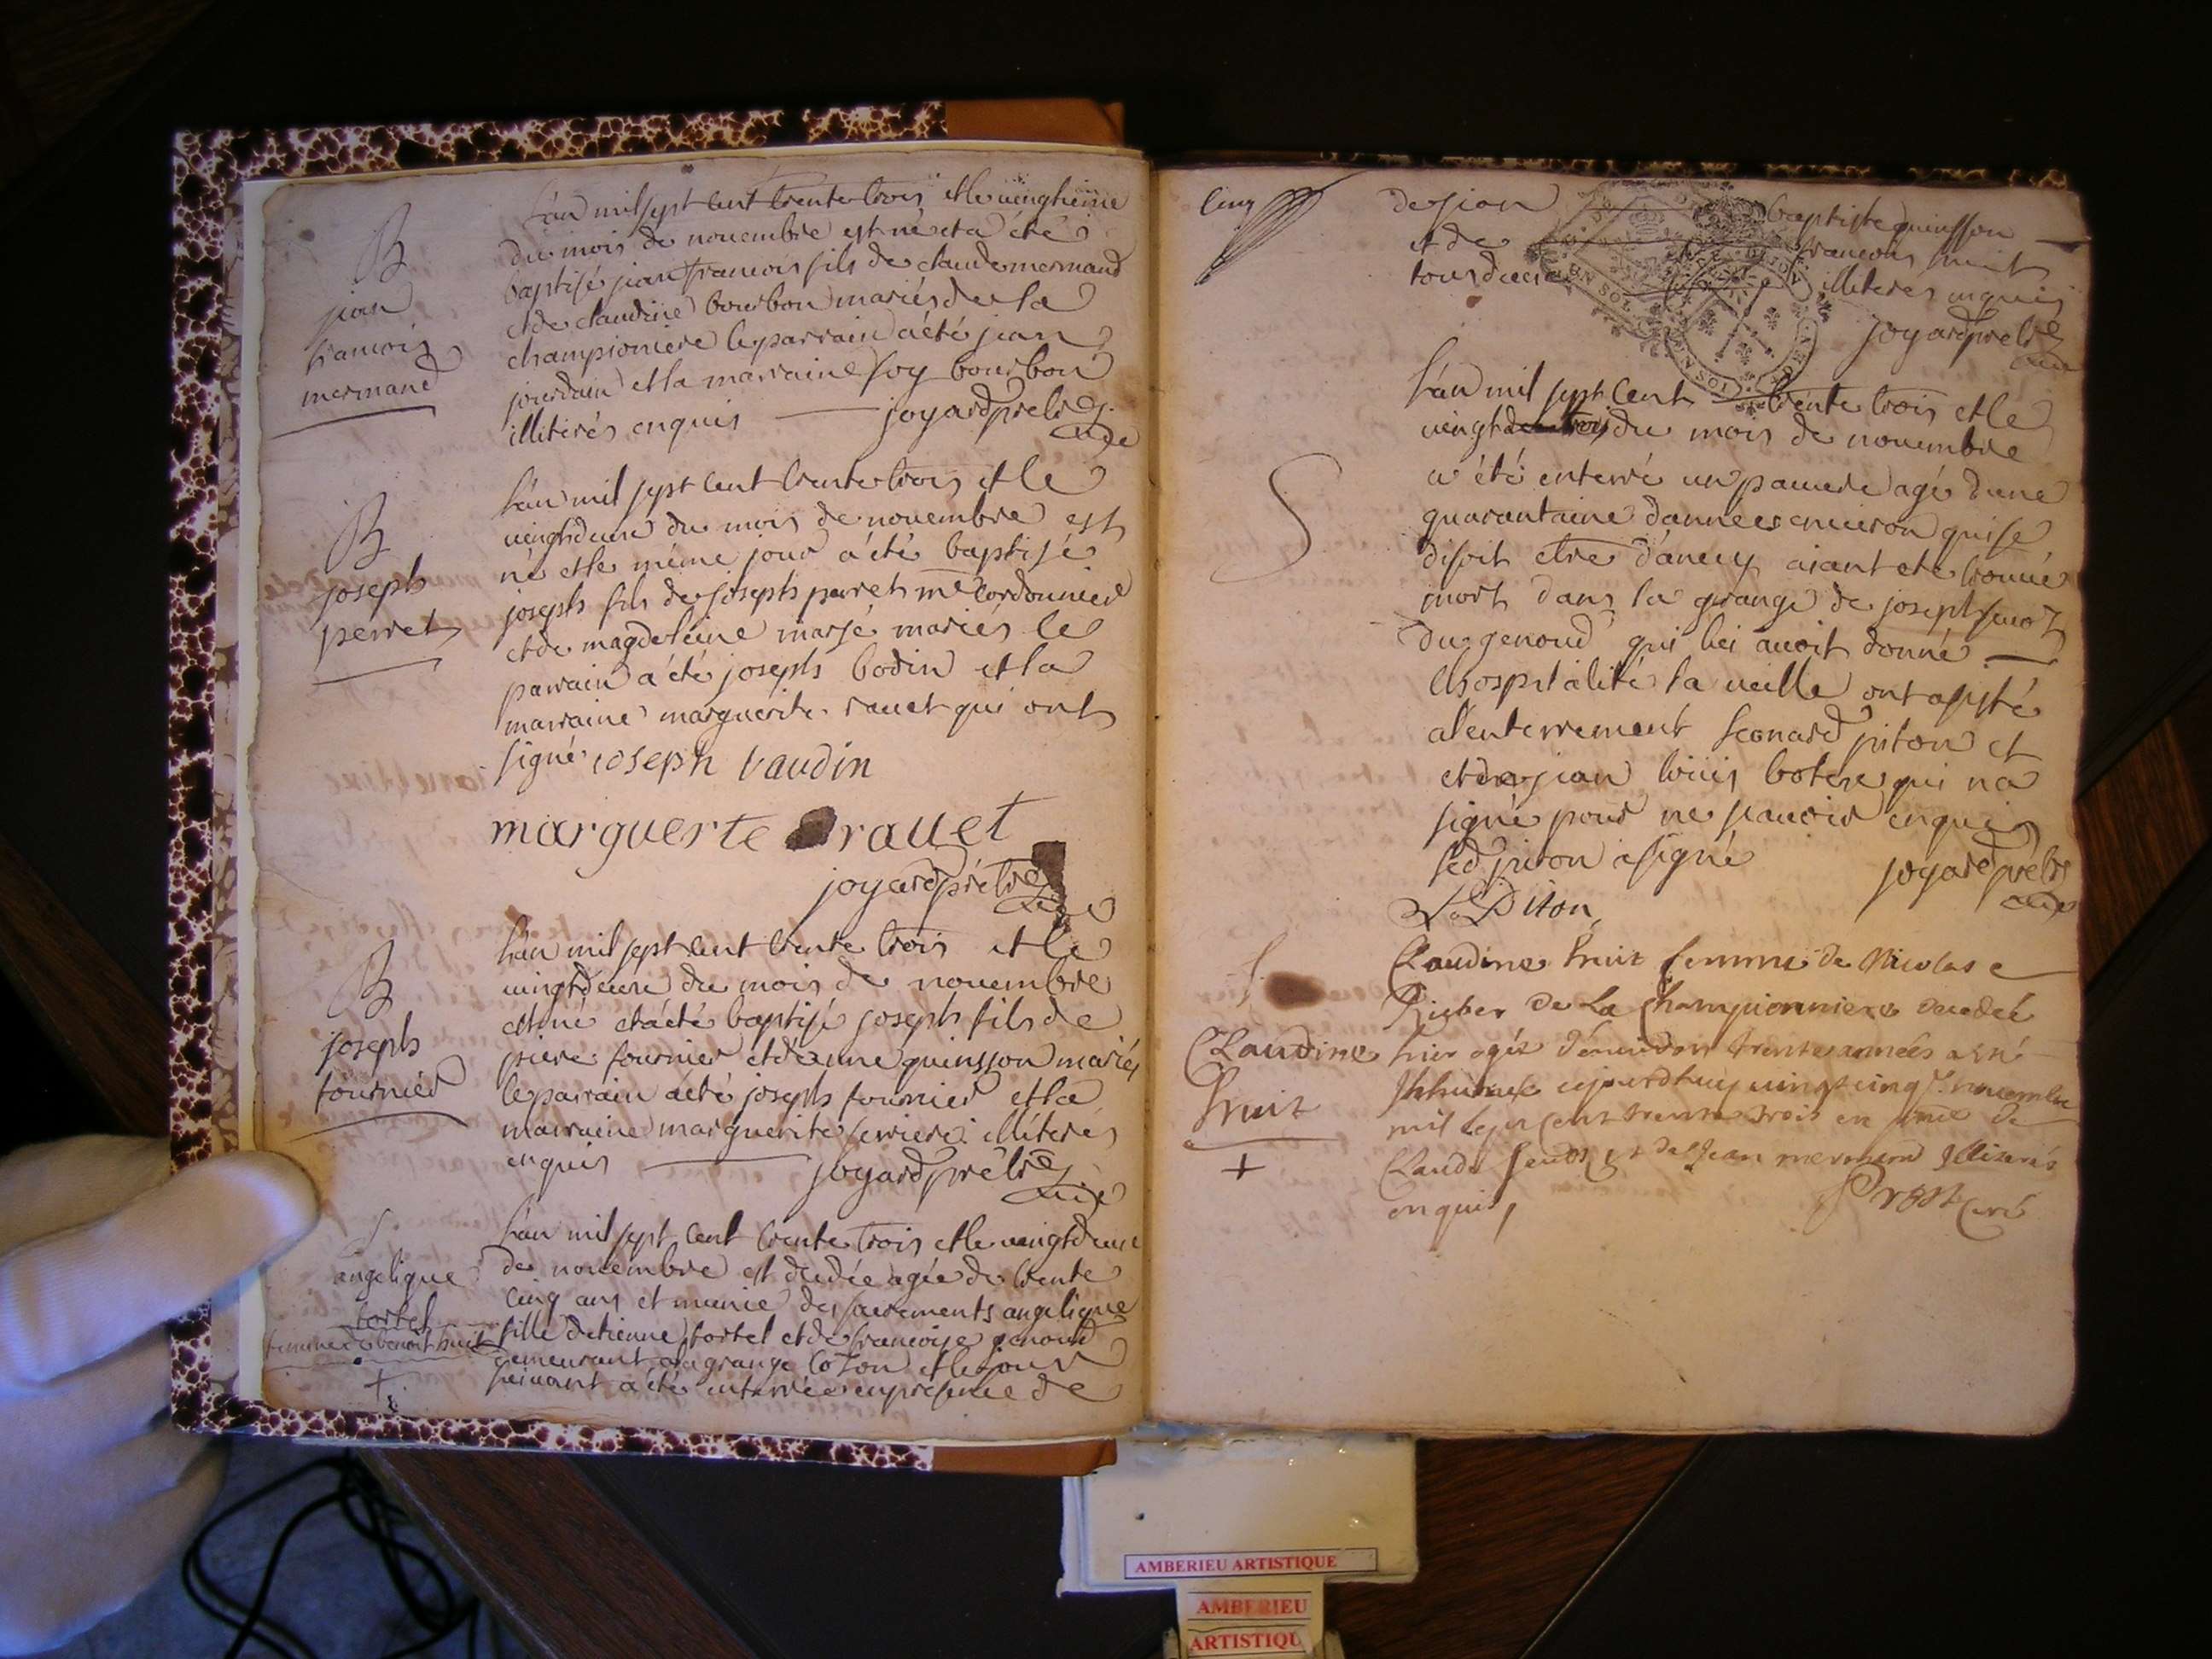 B
jean
francois
mermand
L'an mil sept cent trente trois et le vingtieme
du mois de novembre est né et a été
baptisé jean francois fils de claude mermand
et de claudine bourbon mariés de la
championiere le parrain a été jean
jourdain et la marraine foy bourbon
illiterés enquis joyard prêtre
B
joseph
perret
L'an mil sept cent trente trois et le
vingtdeux du mois de novembre est
né et le même jour a été baptisé
joseph fils de joseph perret me cordonnier
et de magdeleine marjé mariés le
parrain a été joseph bodin et la
marraine marguerite ravet qui ont
signé ioseph baudin
marguerte ravet
joyard prêtre
B
joseph
fournier
L'an mil sept cent trente trois et le
vingtdeux du mois de novembre
est né et a été baptisé joseph fils de
piere fournier et de anne quinsson mariés
le parrain a été joseph fournier et la
marraine marguerite ferriere illiterés
enquis joyard prêtre
S
angelique
tortel
femme de benoit huit
+
L'an mil sept cent trente trois et le vingtdeux
de novembre est decedée agée de trente
cinq ans et munie des sacrements angelique
fille d'etienne tortel et de francoise genoud
demeurant a la grange cozon et le jour
suivant a été enterrée en presence de
cinq
de jean baptiste quinsson
et de francois huit
tous deux illiteres enquis
joyard prêtre
S
L'an mil sept cent trente trois et le
vingt du mois de novembre
a été enterré un pauvre agé d'une
quarantaine d'années environ qui se
disoit etre d'anecy aiant eté trouvé
mort dans la grange de joseph
du genoud qui lui avoit donné
l'hospitalité la veille ont assisté
a l'enterrement leonard piton et
et de jean louis botex qui n'a
signé pour ne scavoir enquis
led piton a signé joyard prêtre
L Piton
S
Claudine
huit
+
Claudine huit femme de Nicolas
de la Championniere decedeé
hier ageé d'environ trente années a eté
Inhumeé aujourdhuy vingt cinq novembre
mil sept cent trente trois en pnce de
Claude et de Jean mermand Illiterés
enquis,
Prost Curé
AMBERIEU ARTISTIQUE
AMBERIEU
ARTISTIQU